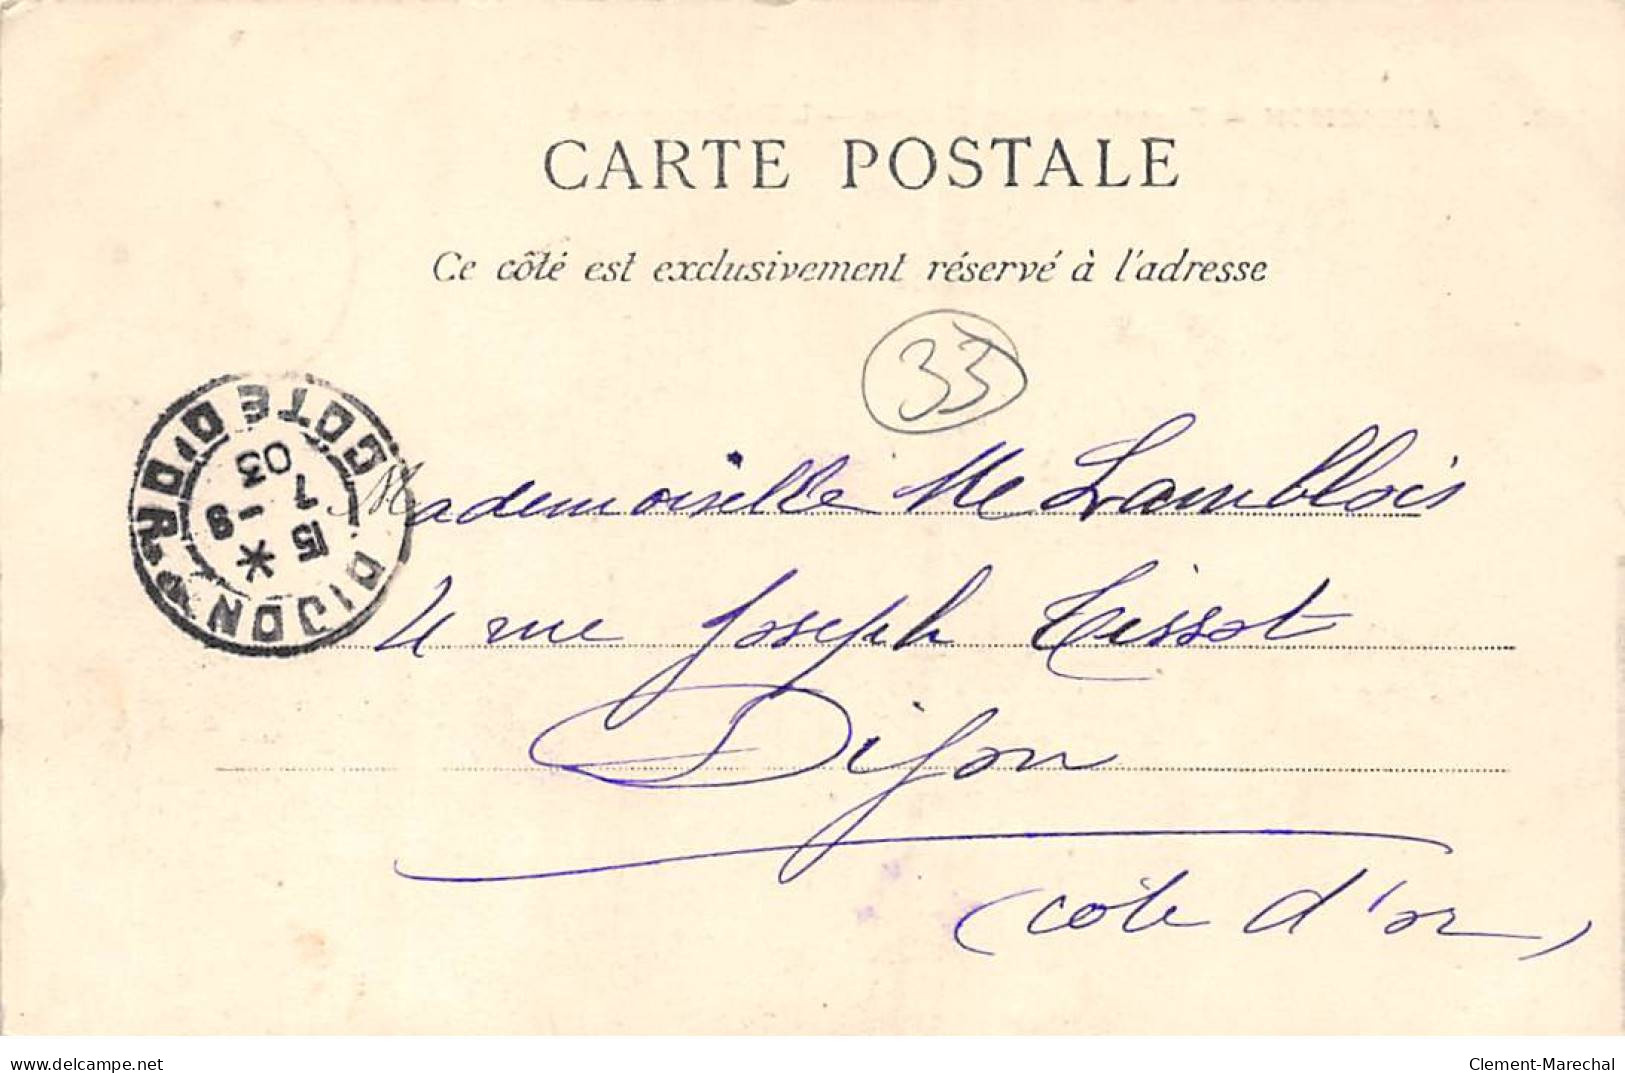 CARTE POSTALE
Ce côté est exclusivement réservé à l'adresse
33
Mademoiselle M Lamblois
4 rue Joseph Tissot
Dijon
(Côte d'or)
DIJON
COTE D'OR
15 -8
7
03
delcampe.net
Clement-Marechal